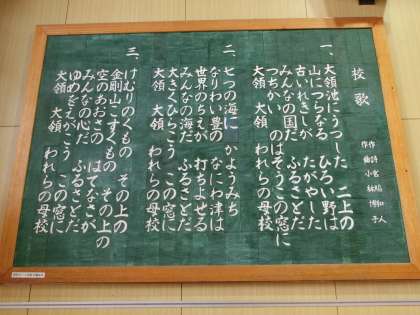 校歌
作詩 宮
作曲 小
一、大領池にうつした 二上の
山につらなる ひろい野は
古いれきしが たがやした
みんなの国だ ふるさとだ
つちかい のばそうこの窓に
大領 大領 われらの母校
二、七つの海に かようみち
なりわい豊の なにわ津は
世界のちえが 打ちよせる
みんなの海だ ふるさとだ
大きくひらこう この窓に
大領 大領 われらの母校
三、けむりのくもの その上の
金剛山こすくもの その上の
空のあおさの はてなさが
みんなの心だ ふるさとだ
ゆめをえがこう この窓に
大領 大領 われらの母校